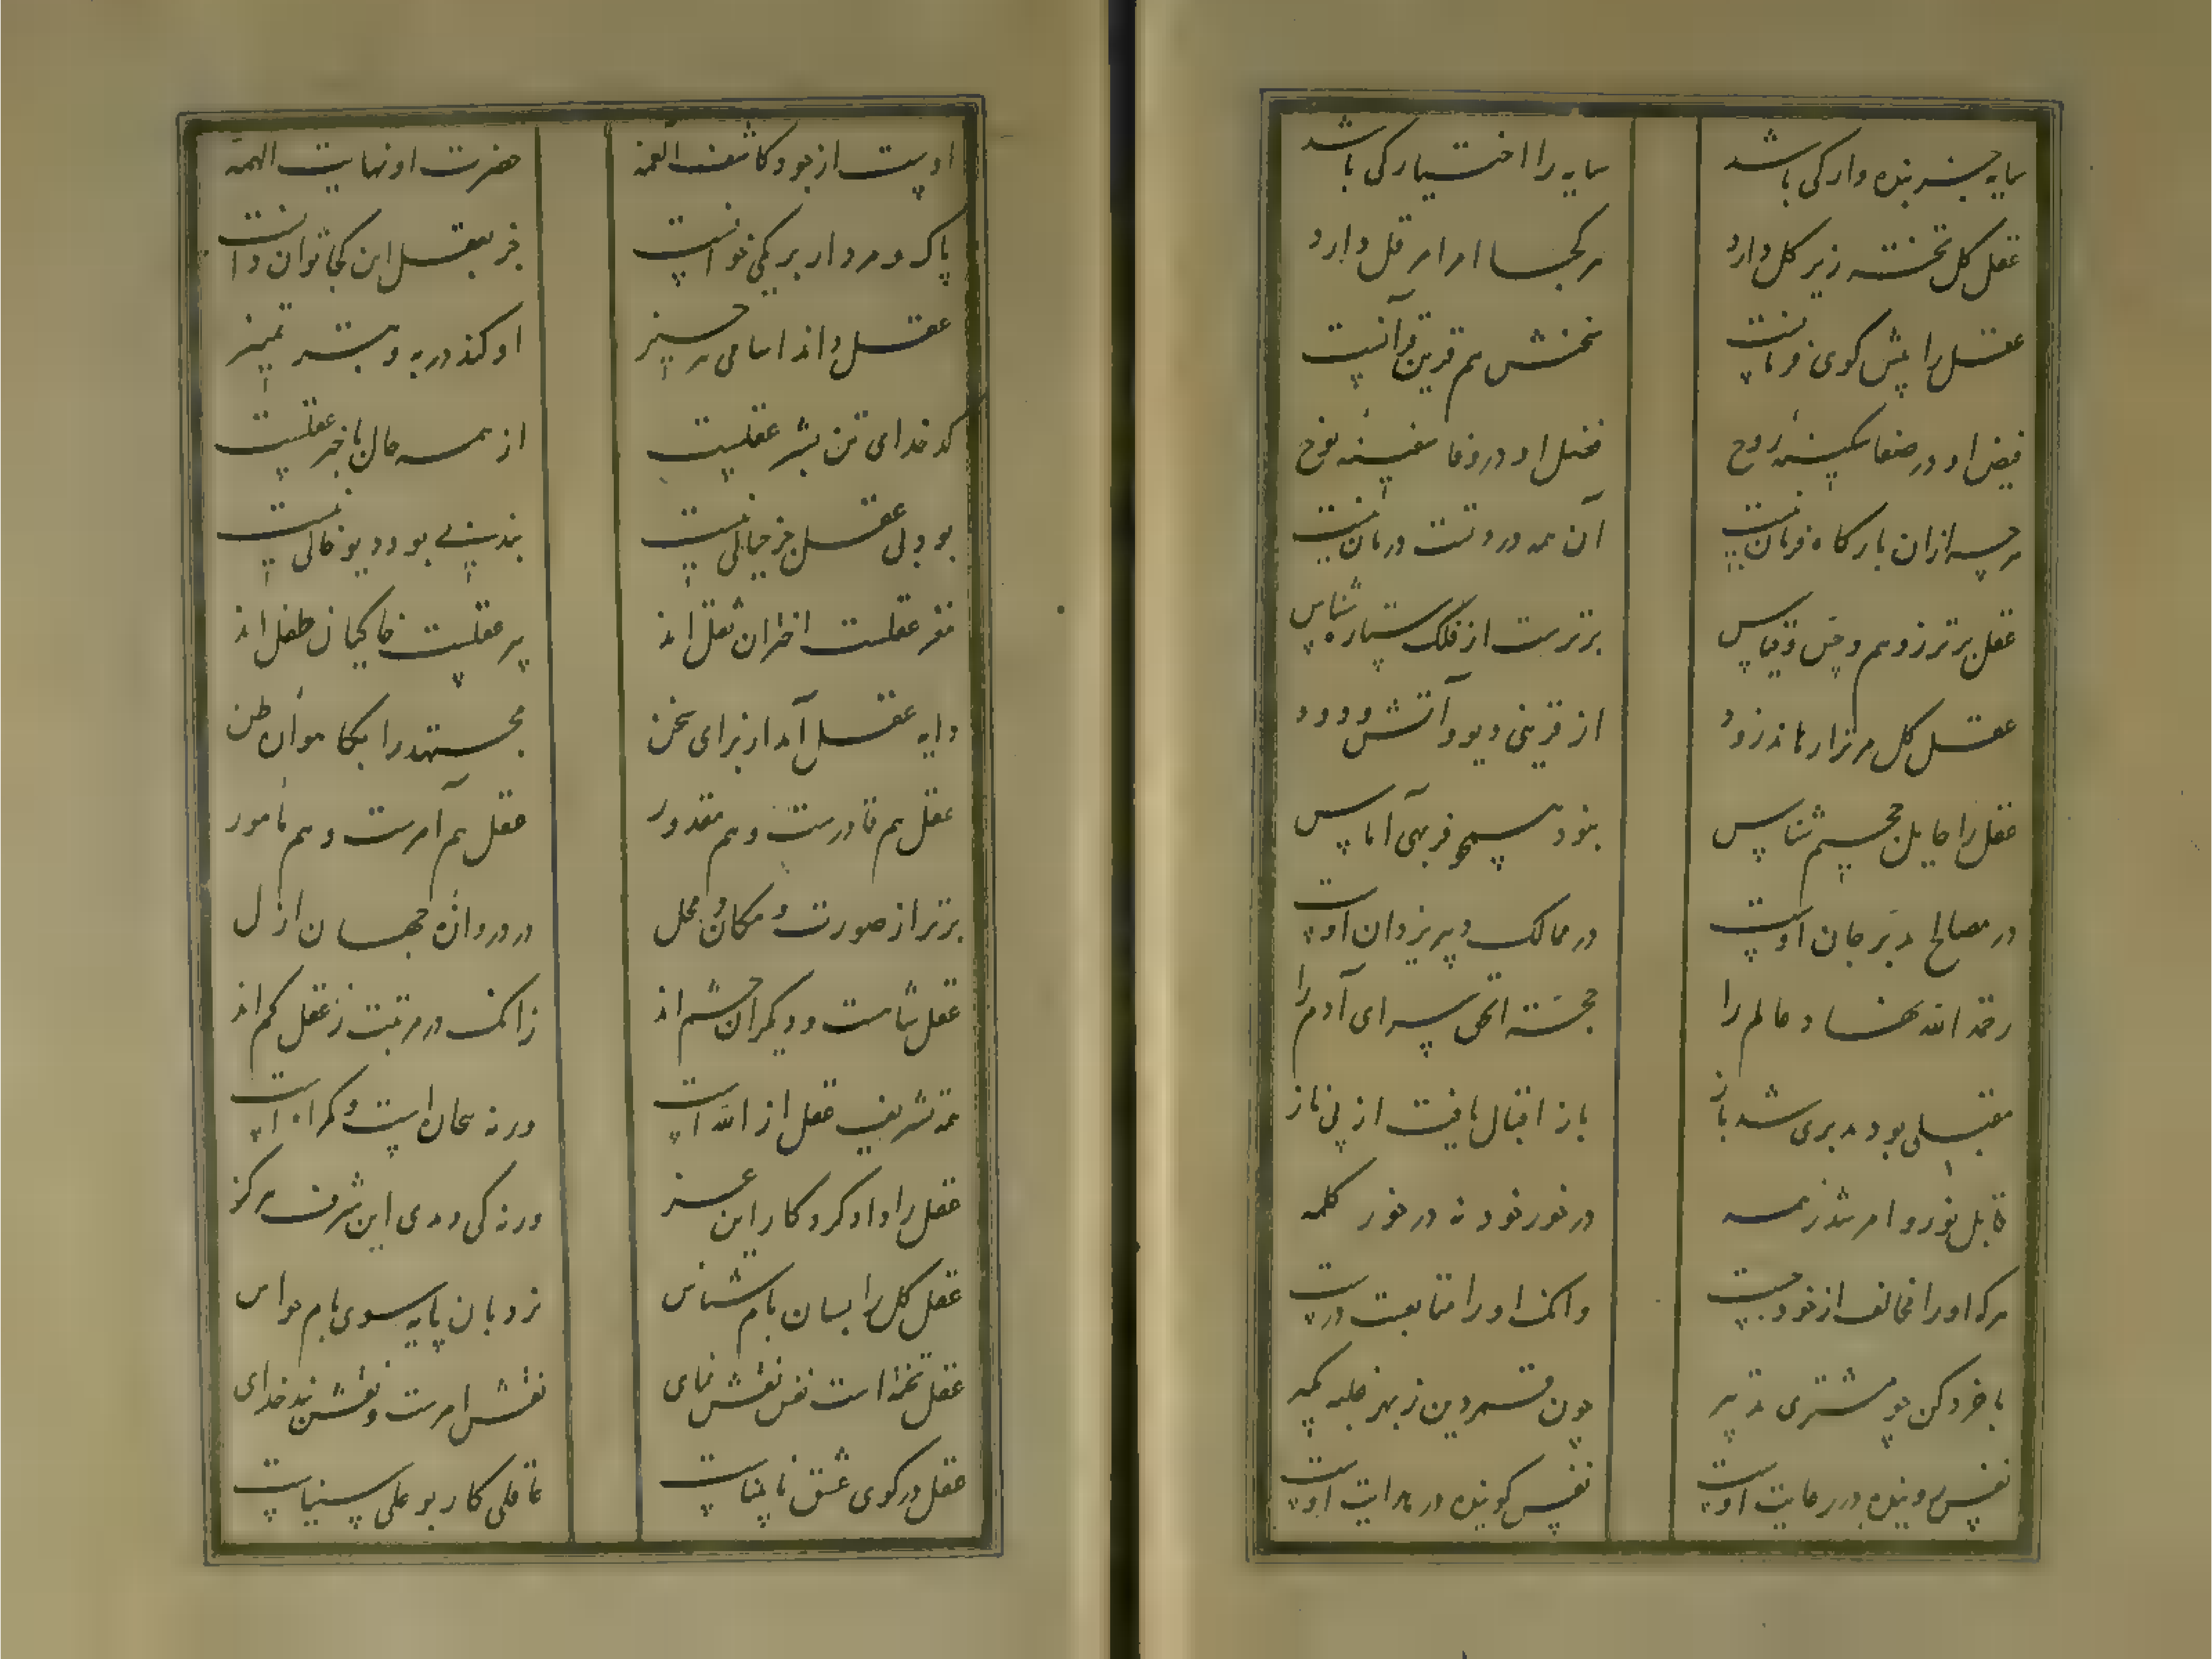 سایه جز بنده وار کی باشد
سایه را اختیار کی باشد
عقل کل تخته زیر کل دارد
هر کجا امر امر قل دارد
عقل را پیش کوی فرمانست
سخنش هم قرین قرآنست
فیض او در صفا سکینه روح
فضل او در وفا سفینه نوح
هر چه ازان بارکاه فرمان نیست
آن همه دردتست درمان نیست
عقل برتر ز وهم و حس و قیاس
برترست از فلک ستاره شناس
عقل کل مر ترا رهاند زود
از قرینی دیو و آتش و دود
عقل را حایل مجسم شناس
نبود هیچ فربهی آماس
در مصالح مدبر جان اوست
در ممالک دبیر یزدان اوست
رفته الله نهاد عالم را
حجته اتقی سرای آدم را
مقبلی بود مدبری شد باز
باز اقبال یافت از پی ناز
قابل نور و امر شد ز همه
در خور خود نه در خور کلمه
هرکه او را مخالف از خود جست
وانک او را متابعت درست
با خرد کن چو مشتری تدبیر
چون قمر دین ز بهر غلبه مگیر
نفس روینده در رعایت اوست
نفس کوینده در هدایت اوست
اوست از جود کاشف الغمه
حضرت او نهایت الهمه
پاک و مردار بر یکی خوانست
جز بعقل این کجا توان دانست
عقل داند اسامی هر چیز
او کند در به و بتر تمییز
کدخدای تن بشر عقلست
از همه حال باخبر عقلست
بو دلی عقل جز خیالی نیست
بندینی بود و دیو خالی نیست
مغز عقلست اختران ثفل اند
پیر عقلست خاکیان طفل اند
دایه عقل آمد از برای سخن
مجتهد را بکاهواره ظن
عقل هم قادرست و هم مقدور
عقل هم آمرست و هم مامور
برتر از صورت و مکان و محل
در دروازه جهان ازل
عقل شاهست و دیکران حشم اند
زانک در مرتبت ز عقل کم اند
همه تشریف عقل از الله است
ورنه بیچاره است و کمراه است
عقل را داد کردکار این عز
ورنه کی دیدی این شرف هرکز
عقل کل را بسان بام شناس
نردبان پایه سوی بام حواس
عقل تخته است نفس نقش نمای
نقش امرست و نقشبند خدای
عقل در کوی عشق نابیناست
عاقلی کار بوعلی سیناست